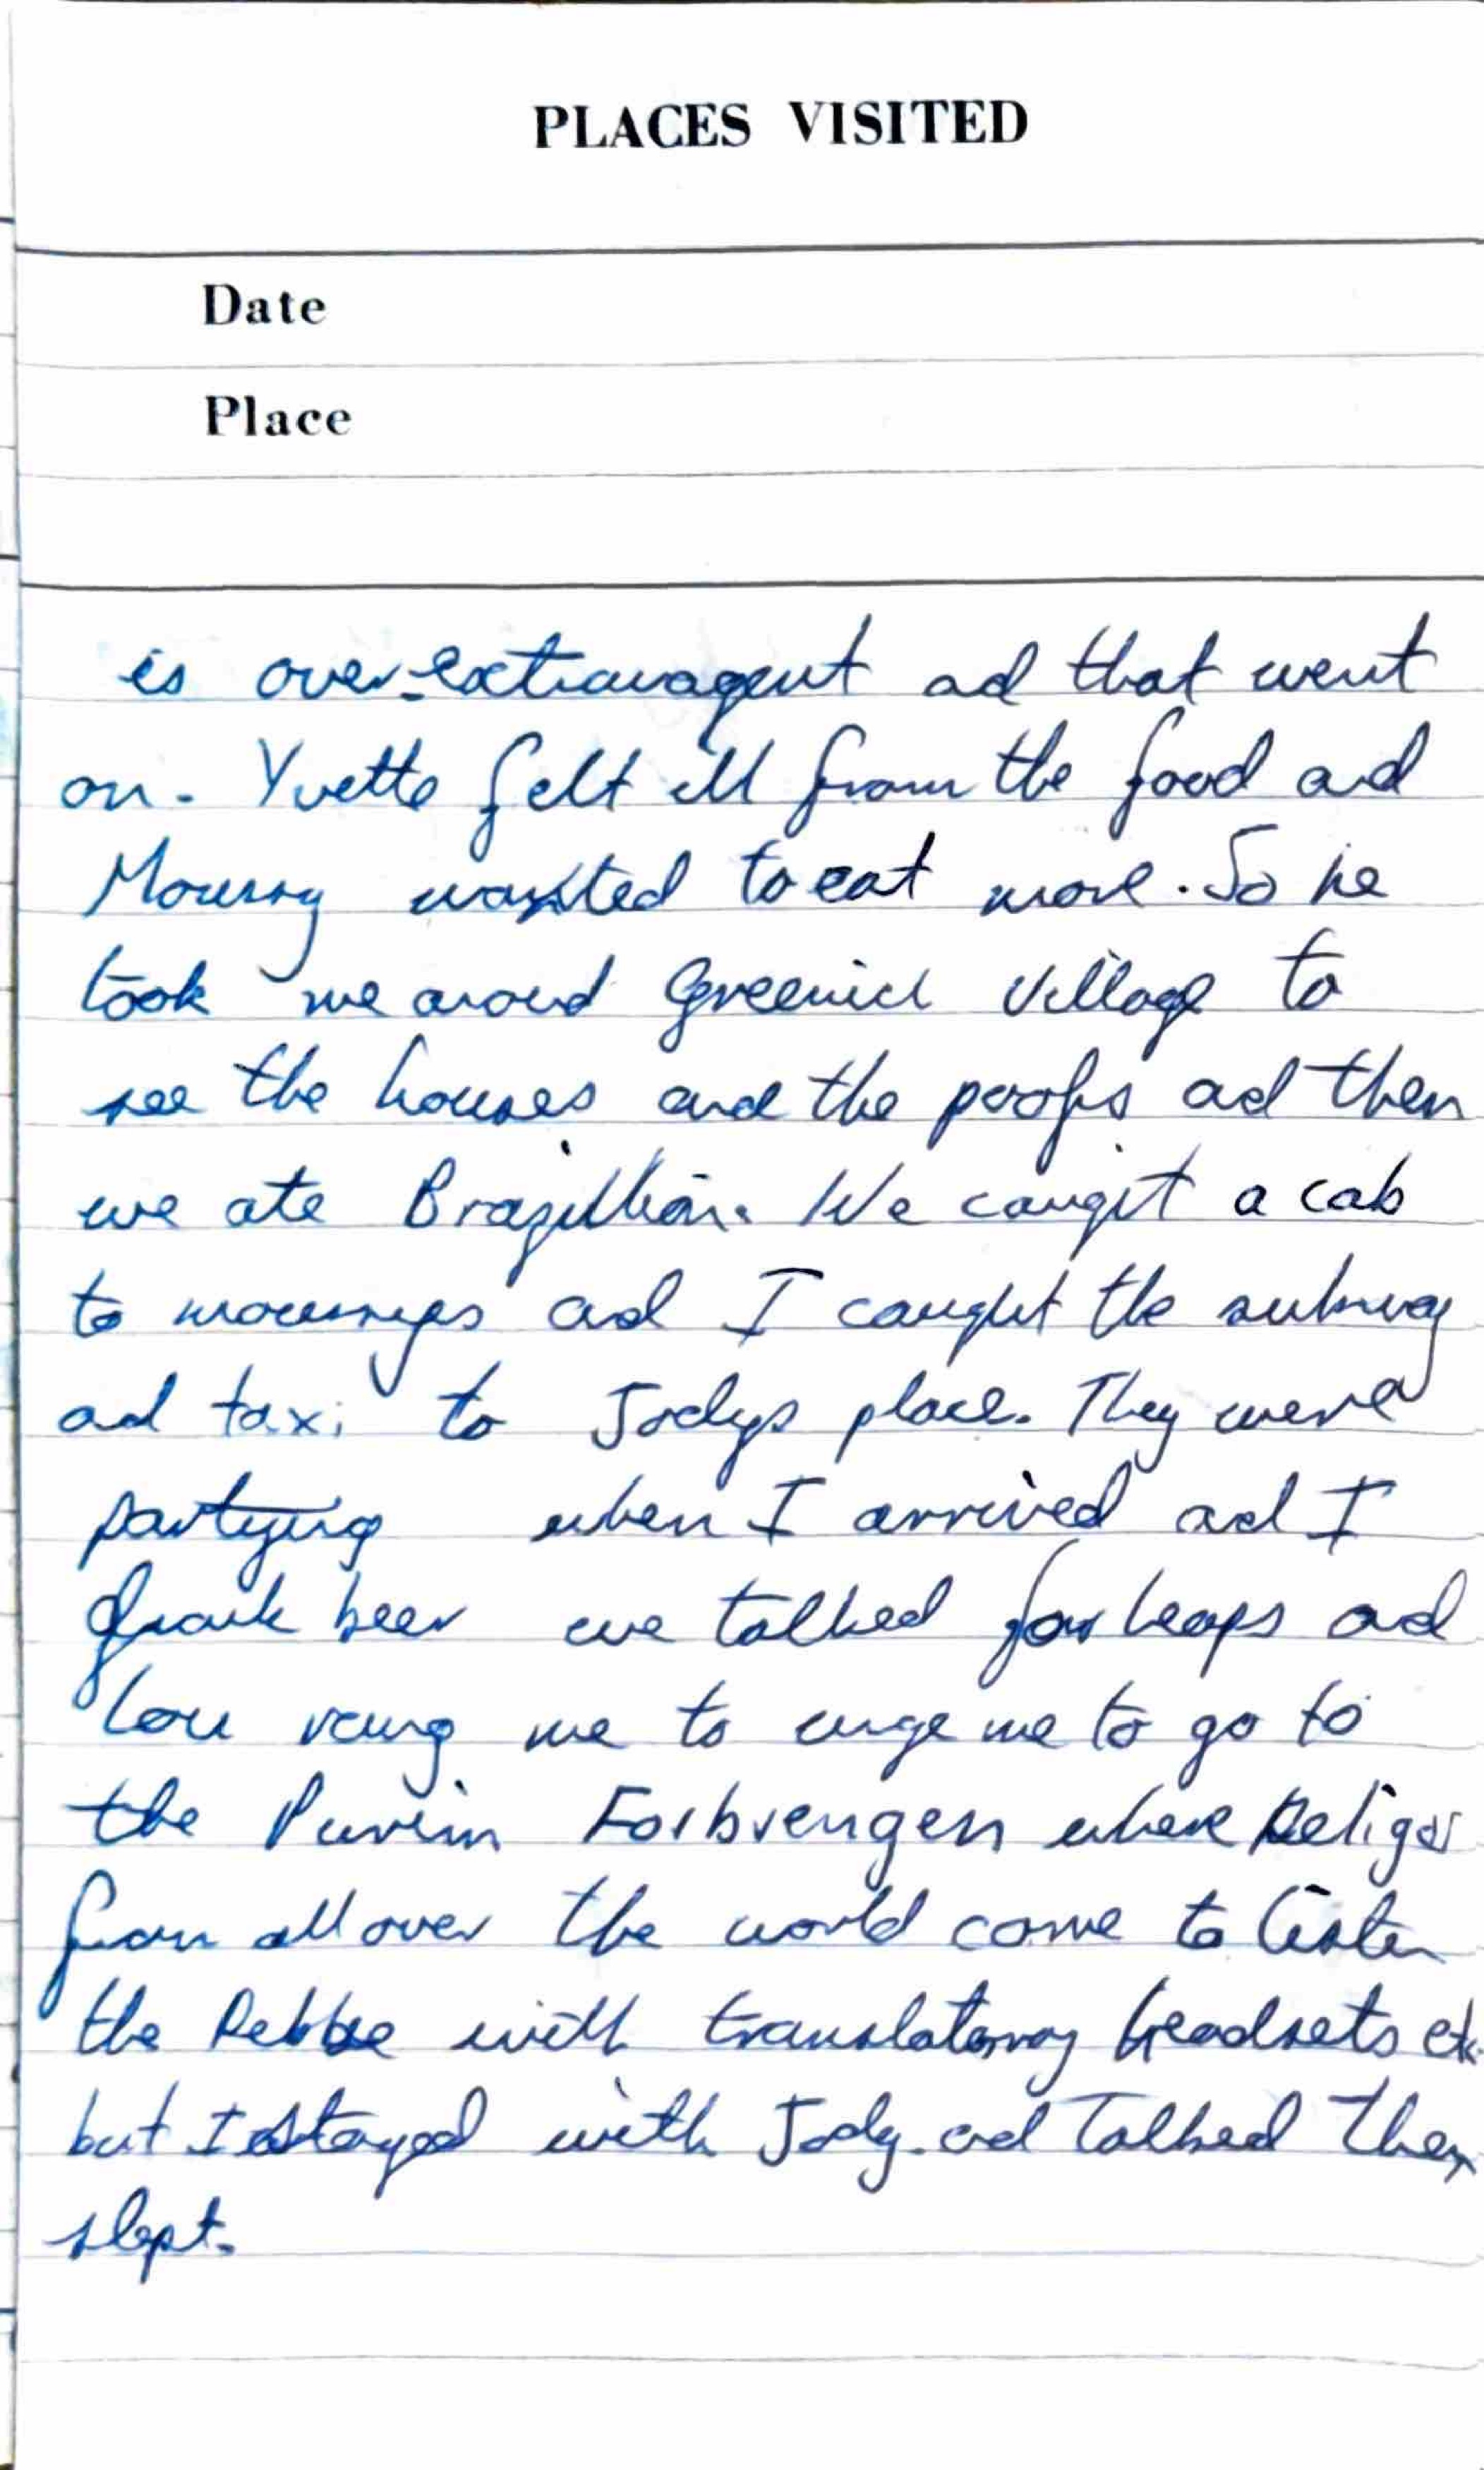 PLACES VISITED
Date
Place
is over-extravagent ad that went
on. Yvette felt ill from the food and
Mourry wanted to eat more. So he
took me around Greenich Village to
see the houses and the poofs ad then
we ate Brazillian. We caught a cab
to mourrys and I caught the subway
ad taxi to Jodys place. They were
partying when I arrived ad I
drank beer we talked for heaps ad
Lou rang me to urge me to go to
the Purim Forbrengen where
from all over the world come to listen
the Rebbe with headsets etc
but I stayed with Jody. ad talked then
slept.